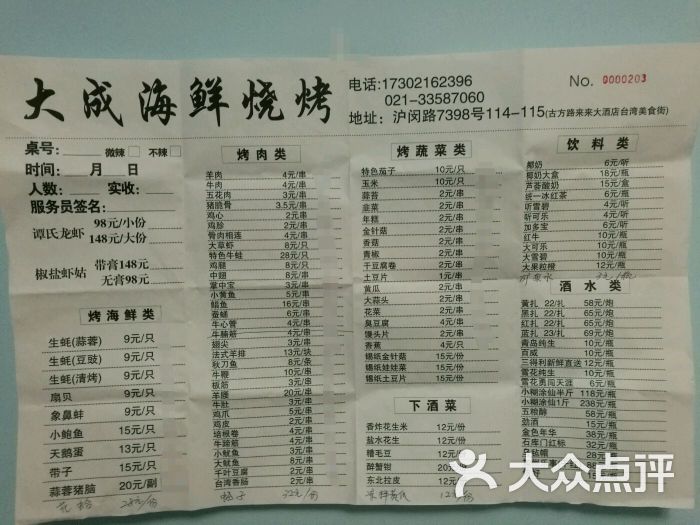 大成海鲜烧烤
电话:17302162396
021-33587060
地址: 沪闵路7398号114-115(古方路来来大酒店台湾美食街)
No. 0000203
桌号: 微辣 不辣
时间: 月 日
人数: 实收:
服务员签名:
谭氏龙虾 98元/小份
148元/大份
椒盐虾姑 带膏148元
无膏98元
烤海鲜类
生蚝(蒜蓉) 9元/只
生蚝(豆豉) 9元/只
生蚝(清烤) 9元/只
扇贝 9元/只
象鼻蚌 9元/只
小鲍鱼 15元/只
天鹅蛋 13元/只
带子 15元/只
蒜蓉猪脑 20元/副
烤肉类
羊肉 4元/串
牛肉 4元/串
五花肉 3元/串
猪脆骨 3.5元/串
鸡心 2元/串
鸡胗 2元/串
骨肉相连 4元/串
大草虾 8元/只
特色牛蛙 28元/只
鸡腿 8元/只
中翅 8元/串
掌中宝 3元/串
小黄鱼 5元/串
鲳鱼 16元/串
蚕蛹 6元/串
牛心管 4元/串
牛腩筋 4元/串
翅尖 3元/串
法式羊排 13元/块
秋刀鱼 8元/条
牛鞭 10元/串
板筋 3元/串
羊腰 20元/串
牛肚 3元/串
鸡爪 5元/串
鸡皮 2元/串
培根卷 4元/串
牛蹄筋 4元/串
小鱿鱼 3元/串
大鱿鱼 8元/串
牛叶豆腐 2元/串
台湾香肠 5元/串
32元/份
烤蔬菜类
特色茄子 10元/只
玉米 10元/只
蒜苔 2元/串
韭菜 2元/串
年糕 2元/串
金针菇 2元/串
香菇 2元/串
青椒 2元/串
干豆腐卷 2元/串
土豆片 1元/串
黄瓜 2元/串
大蒜头 2元/串
花菜 2元/串
臭豆腐 4元/串
馒头片 2元/串
香蕉 4元/只
锡纸金针菇 15元/份
锡纸娃娃菜 15元/份
锡纸土豆片 15元/份
下酒菜
香炸花生米 12元/份
盐水花生 12元/份
糟毛豆 12元/份
醉蟹钳 20元/份
东北拉皮 12元/份
饮料类
椰奶 6元/听
椰奶大盒 18元/盒
芦荟酸奶 15元/盒
统一冰红茶 6元/瓶
听雪碧 4元/听
听可乐 4元/听
加多宝 6元/听
红牛 10元/听
大可乐 12元/瓶
大雪碧 12元/瓶
大果粒橙 12元/瓶
酒水类
黄扎 22/扎 58元/炮
黑扎 22/扎 65元/炮
红扎 21/扎 65元/炮
蓝扎 25/扎 69元/炮
青岛纯生 10元/瓶
百威 10元/瓶
三得利新鲜直送 12元/瓶
雪花纯生 10元/瓶
雪花勇闯天涯 6元/瓶
小糊涂仙半斤 138元/瓶
小糊涂仙1斤 238元/瓶
五粮醇 58元/瓶
劲酒 15元/瓶
金色年华 38元/瓶
石库门红标 32元/瓶